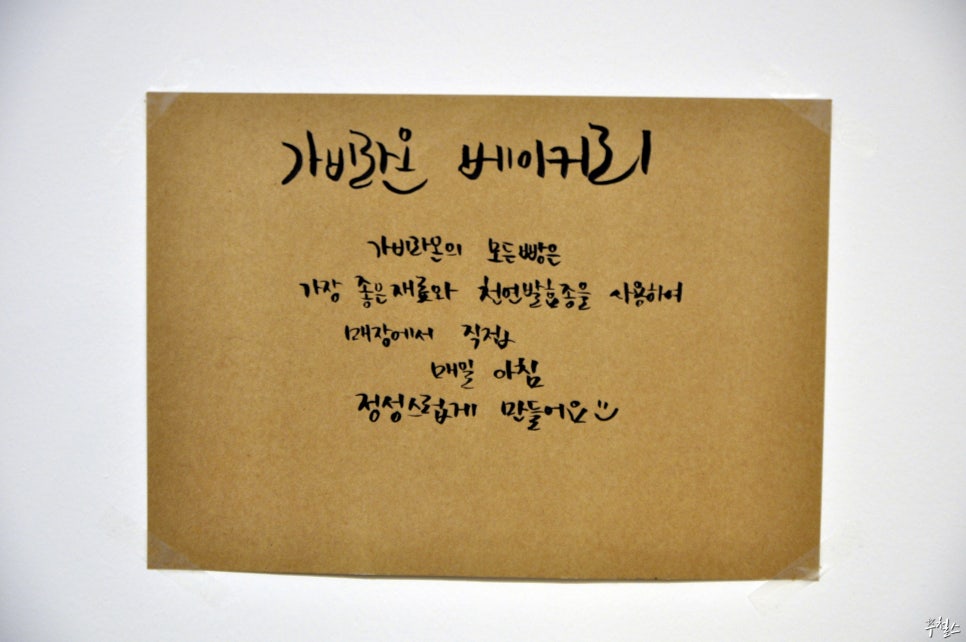 가비라온 베이커리
가비라온의 모든빵은
가장 좋은재료와 천연발효종을 사용하여
매장에서 직접
매일 아침
정성스럽게 만들어요